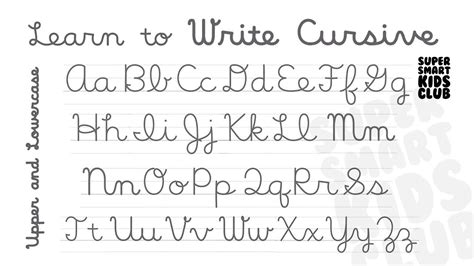 Learn to Write Cursive
SUPER
SMART
KIDS
CLUB
Upper and Lowercase
Aa Bb Cc Dd Ee Ff Gg
Hh Ii Jj Kk Ll Mm
Nn Oo Pp Qq Rr Ss
Tt Uu Vv Ww Xx Yy Zz
SUPER
SMART
KIDS
CLUB